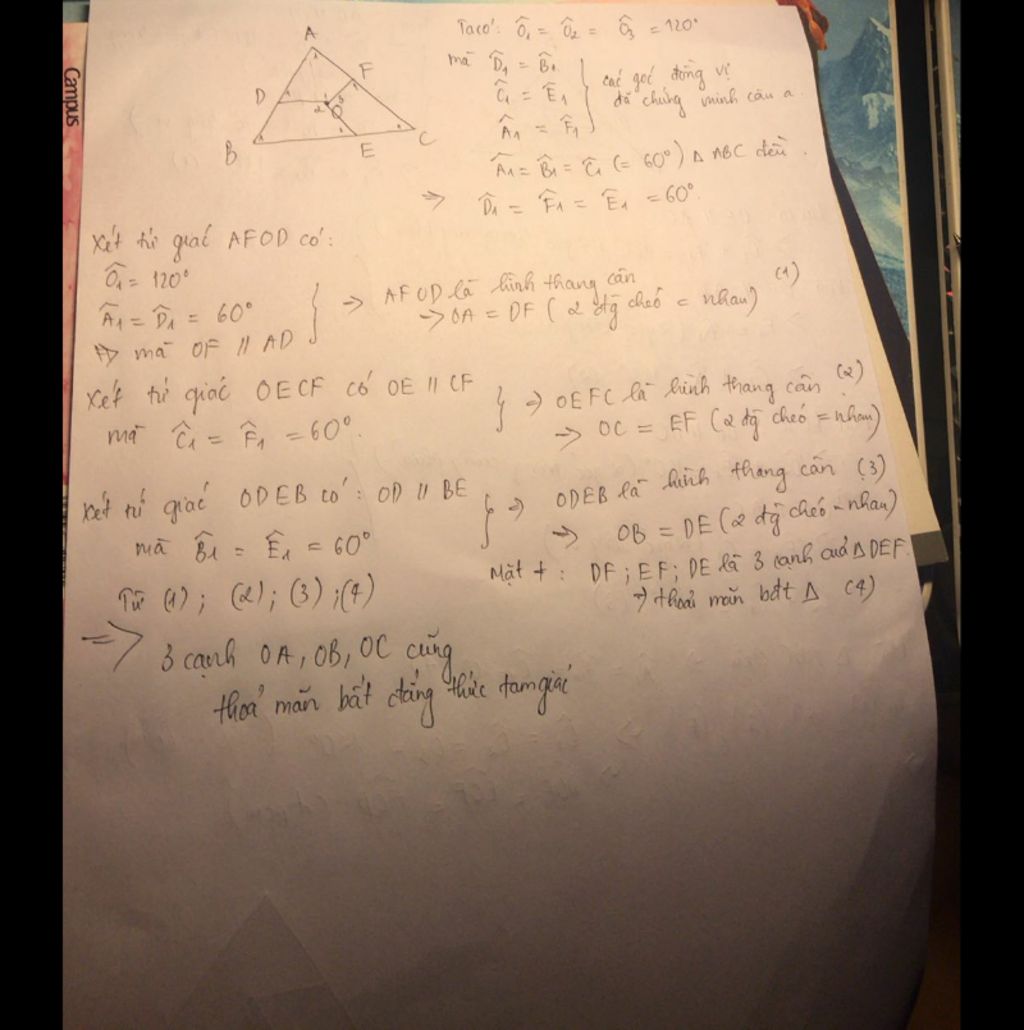 Campus
A
F
D
1 3
2 O
B
E
C
Ta có: Ô1 = Ô2 = Ô3 = 120°
mà D̂1 = B̂1
Ĉ1 = Ê1
Â1 = F̂1
các góc đồng vị
đã chứng minh câu a.
Â1 = B̂1 = Ĉ1 (= 60°) Δ ABC đều.
=> D̂1 = F̂1 = Ê1 = 60°.
Xét tứ giác AFOD có:
Ô1 = 120°
Â1 = D̂1 = 60°
mà OF // AD
→ AFOD là hình thang cân (1)
→ OA = DF (2 đg chéo = nhau)
Xét tứ giác OECF có OE // CF
mà Ĉ1 = F̂1 = 60°.
=> OEFC là hình thang cân (2)
=> OC = EF (2 đg chéo = nhau)
Xét tứ giác ODEB có: OD // BE
mà B̂1 = Ê1 = 60°
=> ODEB là hình thang cân (3)
=> OB = DE (2 đg chéo = nhau)
Mặt ≠: DF; EF; DE là 3 cạnh của Δ DEF.
=> thoả mãn bđt Δ (4)
Từ (1); (2); (3); (4)
=> 3 cạnh OA, OB, OC cũng
thoả mãn bất đẳng thức tam giác